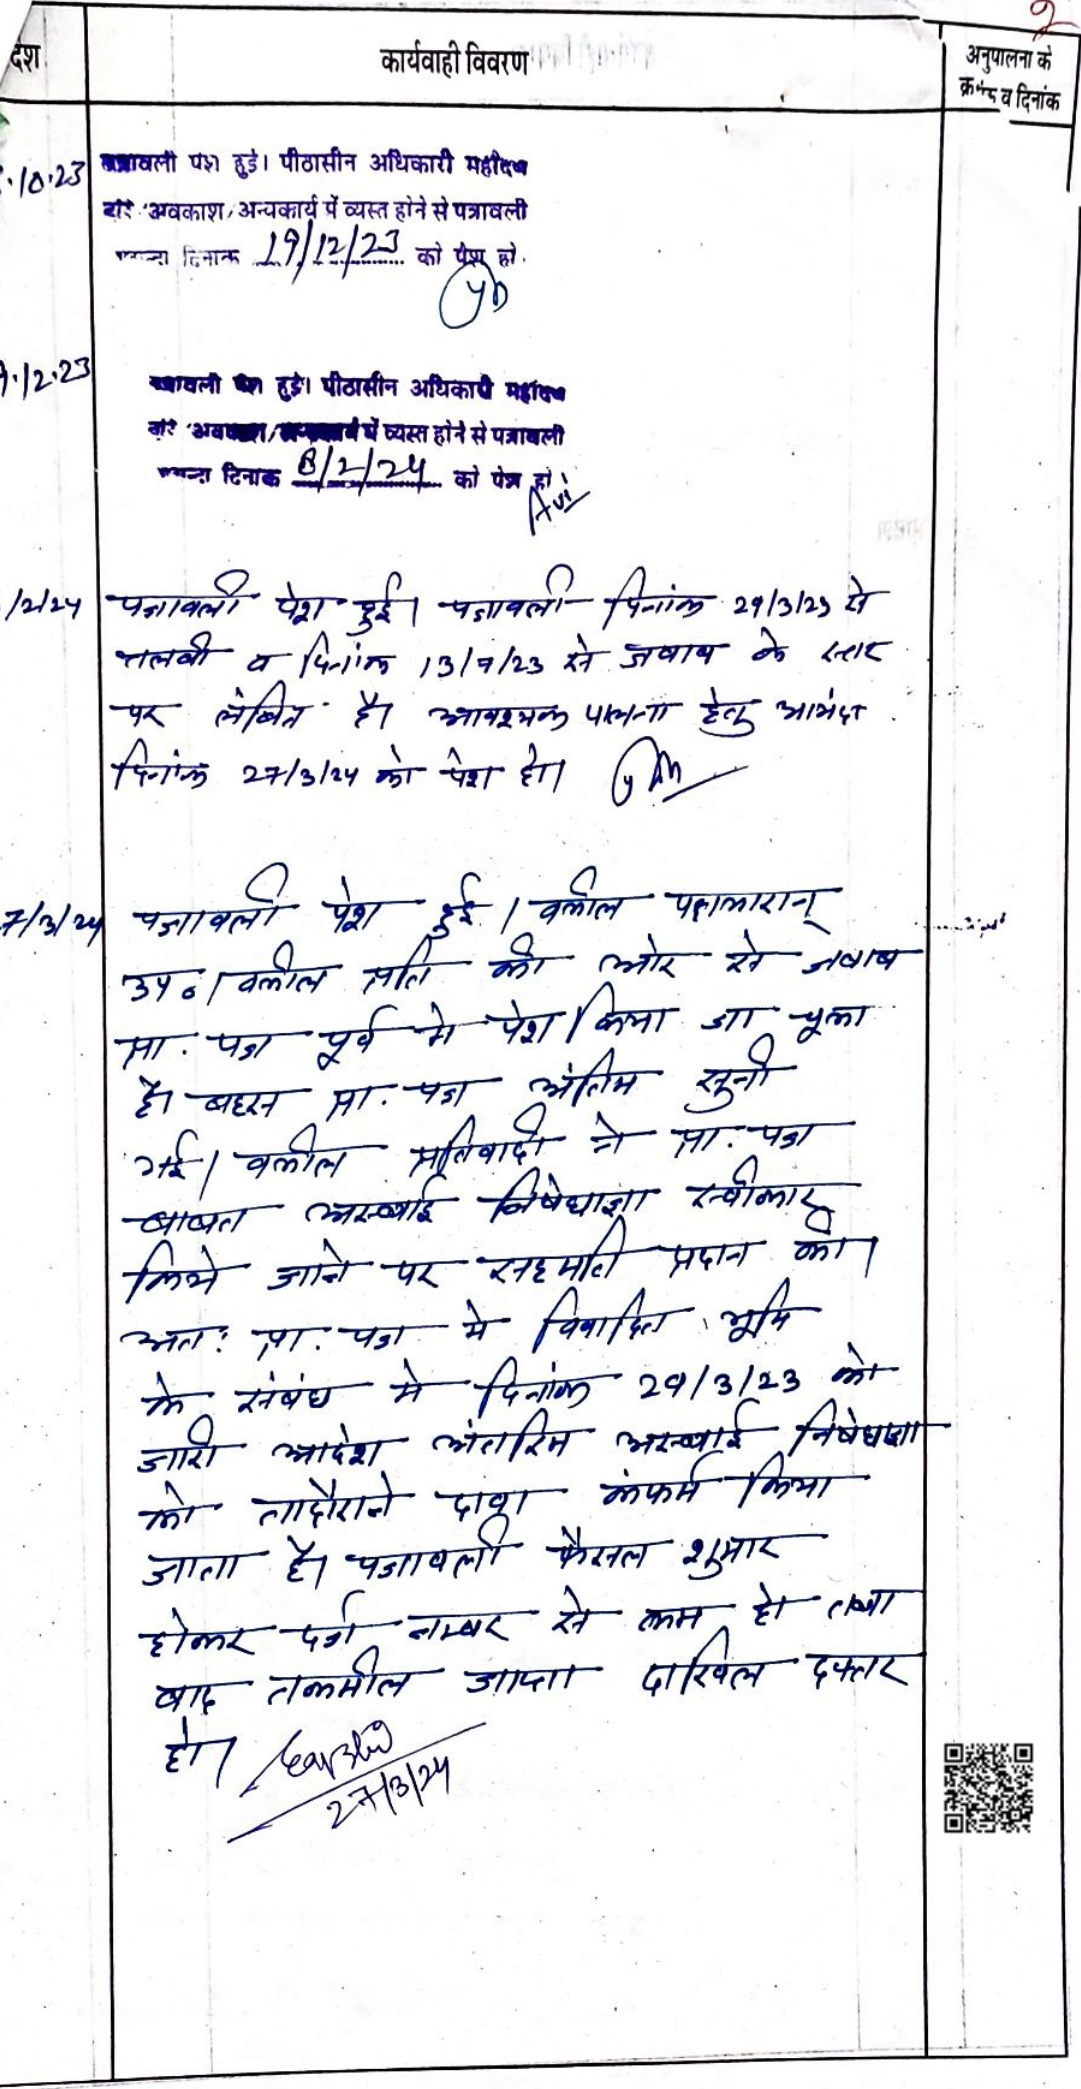 2
देश
कार्यवाही विवरण
अनुपालना के
व दिनांक
.10.23
पत्रावली पेश हुई। पीठासीन अधिकारी महोदय
अवकाश/अन्यकार्य में व्यस्त होने से पत्रावली
दिनांक 19/12/23 को पेश हो.
.12.23
पत्रावली पेश हुई। पीठासीन अधिकारी महोदय
अवकाश/अन्यकार्य में व्यस्त होने से पत्रावली
दिनांक 8/2/24 को पेश हो।
/2/24
पत्रावली पेश हुई। पत्रावली दिनांक 29/3/23 से
तलबी व दिनांक 13/9/23 से जवाब के स्तर
पर लंबित है। आवश्यक पालना हेतु आयंदा
दिनांक 27/3/24 को पेश हो।
7/3/24
पत्रावली पेश हुई। वकील पक्षकारान्
उप०। वकील प्रति की ओर से जवाब
प्रा. पत्र पूर्व मे पेश किया जा चूका
है। बहस प्रा. पत्र अंतिम सुनी
गई। वकील प्रतिवादी ने प्रा. पत्र
बाबत अस्थाई निषेधाज्ञा स्वीकार
किये जाने पर सहमति प्रदान की।
अतः प्रा. पत्र मे विवादित भूमि
के संबंध मे दिनांक 29/3/23 को
जारी आदेश अंतरिम अस्थाई निषेधाज्ञा
को तादौराने दावा कंफर्म किया
जाता है। पत्रावली फैसल शुमार
होकर दर्ज नम्बर से कम हो तथा
बाद तकमील जाप्ता दाखिल दफ्तर
हो।
27/3/24